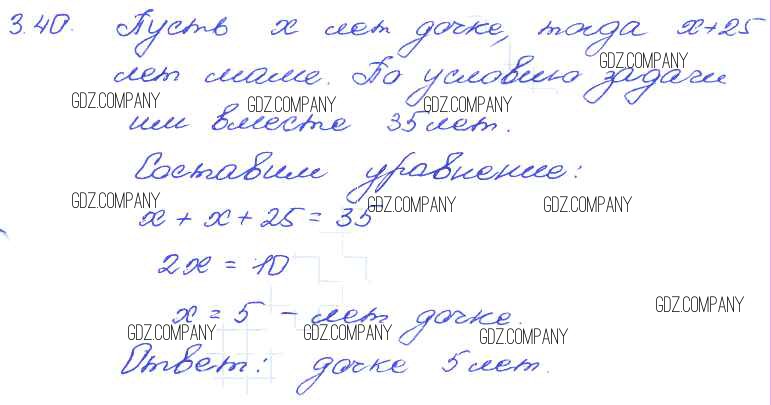 3.40. Пусть x лет дочке, тогда x+25
лет маме. По условию задачи
им вместе 35 лет.
Составим уравнение:
x + x + 25 = 35
2x = 10
x = 5 - лет дочке.
Ответ: дочке 5 лет.
GDZ.COMPANY
GDZ.COMPANY
GDZ.COMPANY
GDZ.COMPANY
GDZ.COMPANY
GDZ.COMPANY
GDZ.COMPANY
GDZ.COMPANY
GDZ.COMPANY
GDZ.COMPANY
GDZ.COMPANY